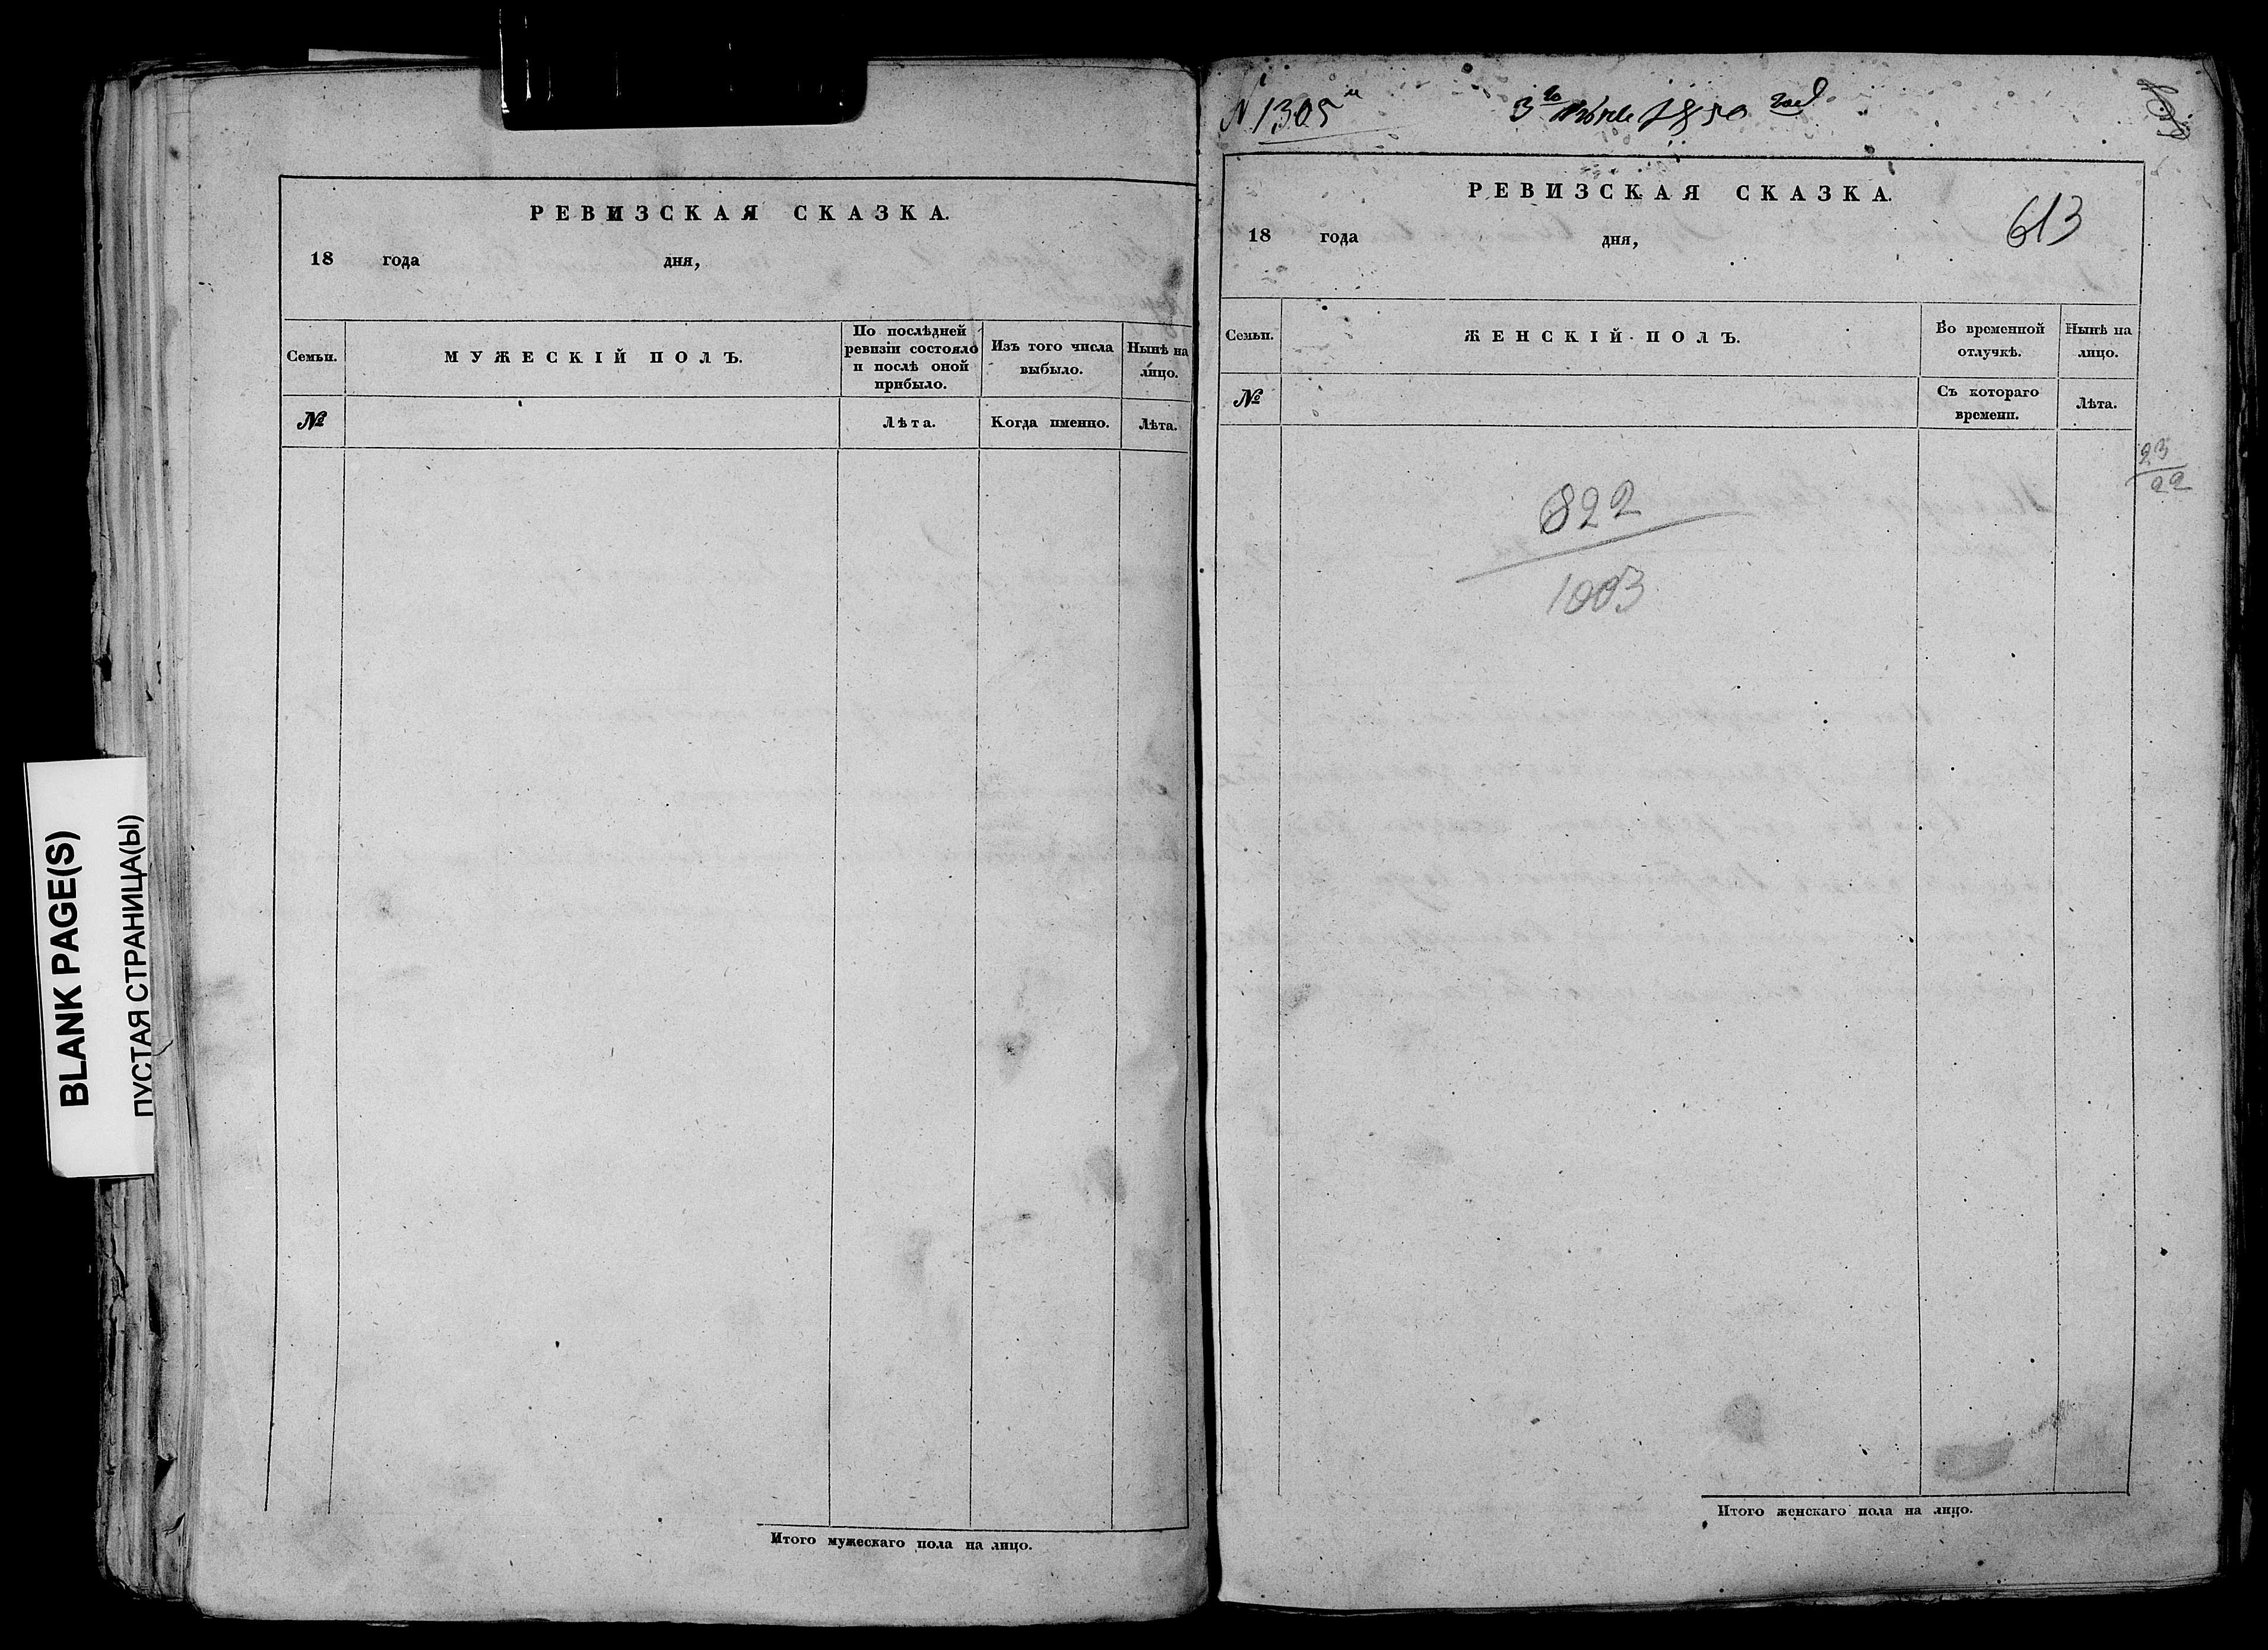 BLANK PAGE(S)
ПУСТАЯ СТРАНИЦА(Ы)
РЕВИЗСКАЯ СКАЗКА.
18 года дня,
Семьи.
МУЖЕСКІЙ ПОЛЪ.
По послѣдней
ревизіи состояло
и послѣ оной
прибыло.
Изъ того числа
выбыло.
Нынѣ на
лицо.
№
Лѣта.
Когда именно.
Лѣта.
Итого мужескаго пола на лицо.
№ 1305
3го 1850 года
РЕВИЗСКАЯ СКАЗКА.
613
18 года дня,
Семьи.
ЖЕНСКІЙ ПОЛЪ.
Во временной
отлучкѣ.
Нынѣ на
лицо.
№
Съ котораго
времени.
Лѣта.
23
22
822
1003
Итого женскаго пола на лицо.